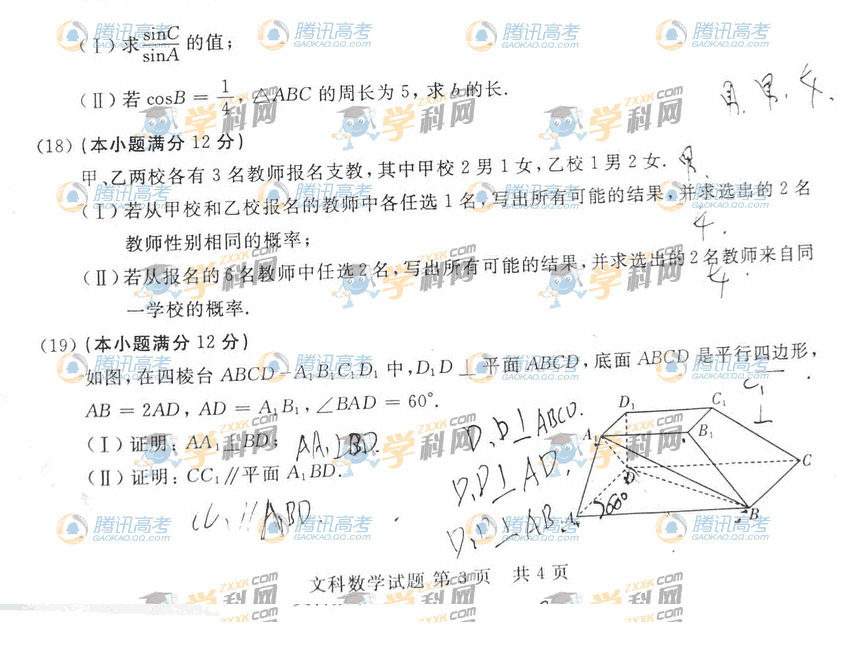 (Ⅰ)求 sinC/sinA 的值;
(Ⅱ)若 cosB = 1/4, △ABC 的周长为 5, 求 b 的长.
男. 男. 女.
(18) (本小题满分 12 分)
甲、乙两校各有 3 名教师报名支教,其中甲校 2 男 1 女,乙校 1 男 2 女. 男.
(Ⅰ)若从甲校和乙校报名的教师中各任选 1 名,写出所有可能的结果,并求选出的 2 名
教师性别相同的概率; 女.
(Ⅱ)若从报名的 6 名教师中任选 2 名,写出所有可能的结果,并求选出的 2 名教师来自同
一学校的概率. 女.
(19) (本小题满分 12 分)
如图,在四棱台 ABCD-A₁B₁C₁D₁ 中,D₁D ⊥ 平面 ABCD,底面 ABCD 是平行四边形,
AB = 2AD, AD = A₁B₁, ∠BAD = 60°.
(Ⅰ)证明: AA₁⊥BD; AA₁⊥BD.
(Ⅱ)证明: CC₁∥平面 A₁BD.
CC₁∥A₁BD
D₁D⊥ABCD.
D₁D⊥AD.
D₁D⊥AB.
C₁
⊥
D₁ C₁
A₁ B₁
D C
60°
A B
文科数学试题 第 3 页 共 4 页
腾讯高考
GAOKAO.QQ.COM
学科网
ZXXK.COM